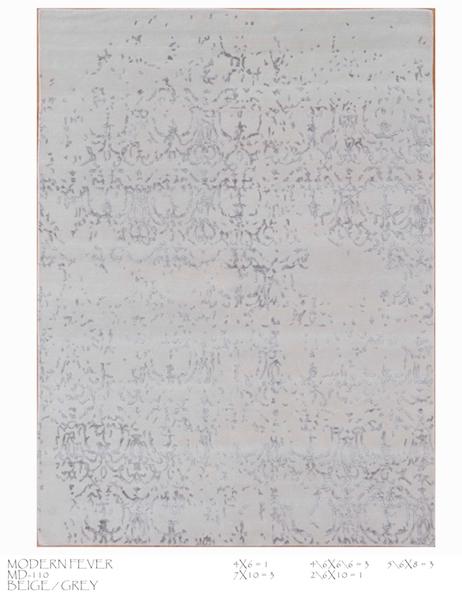 MODERN FEVER 4X6 = 1 4\6X6\6 = 3 5\6X8 = 3
MD-110 7X10 = 3 2\6X10 = 1
BEIGE / GREY